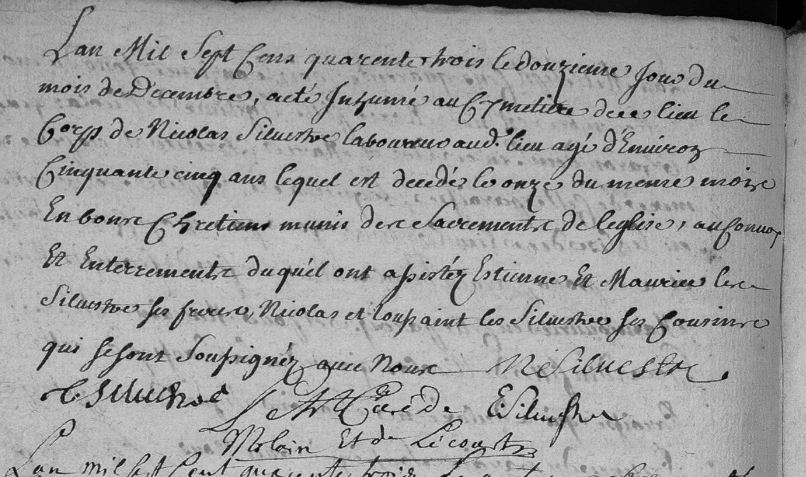 Lan Mil Sept Cens quarente trois le douzieme jour du
mois de Decembre, a eté Inhumé au Cymetiere de ce lieu le
Corps de Nicolas Siluestre laboureur aud. lieu agé d'Enuiron
Cinquante cinq ans lequel est decedé le onze du meme mois
En bons Chretiens munis des Sacrements de leglise, au Conuoy
Et Enterrements duquél ont assistéz Estienne Et Maurice les
Siluestre ses freres, Nicolas et loupaint les Siluestre ses Cousins
qui se sont Soussignéz auec Nous NeSiluestre
Siluestre
Curé de ESiluestre
Molain Et de Lécourt
Lan mil sept Cent quarente trois